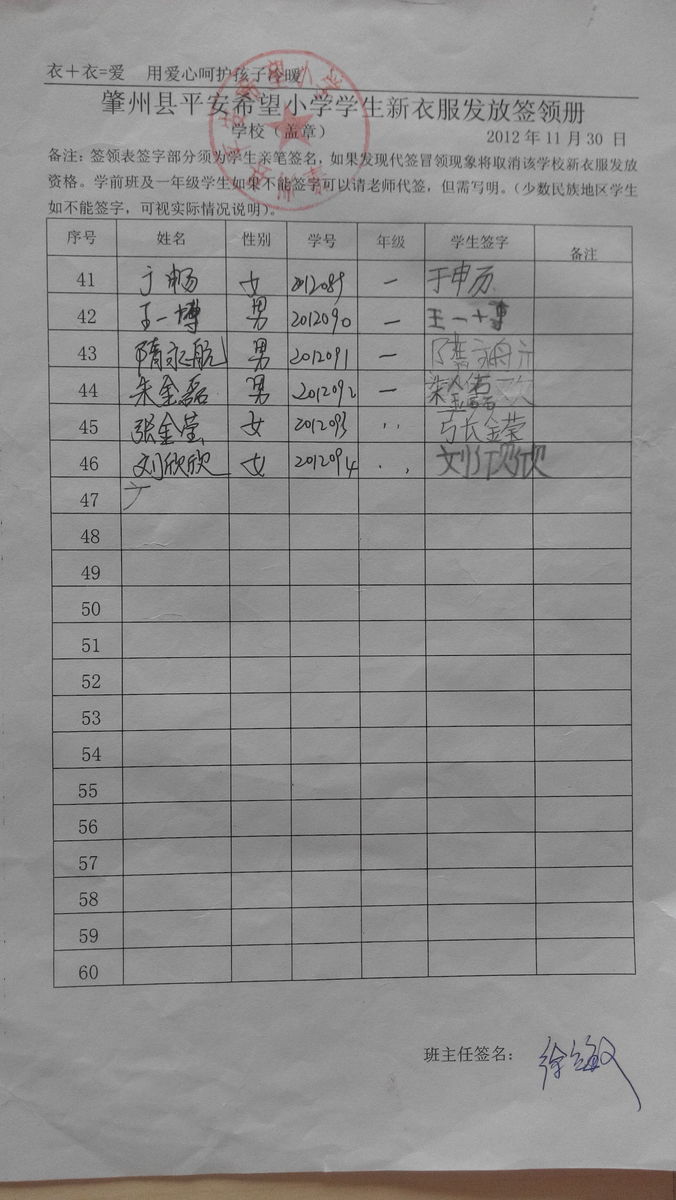 衣+衣=爱 用爱心呵护孩子冷暖
肇州县平安希望小学学生新衣服发放签领册
学校（盖章） 2012 年 11 月 30 日
备注：签领表签字部分须为学生亲笔签名，如果发现代签冒领现象将取消该学校新衣服发放
资格。学前班及一年级学生如果不能签字可以请老师代签，但需写明。（少数民族地区学生
如不能签字，可视实际情况说明）。
序号 姓名 性别 学号 年级 学生签字 备注
41 于畅 女 2012089 一 于申万
42 王一博 男 2012090 一 王一博
43 隋永航 男 2012091 一 隋永航
44 朱金磊 男 2012092 一 朱金磊
45 张金莹 女 2012093 〃 张金莹
46 刘欣欣 女 2012094 〃 刘欣欣
47
48
49
50
51
52
53
54
55
56
57
58
59
60
班主任签名：